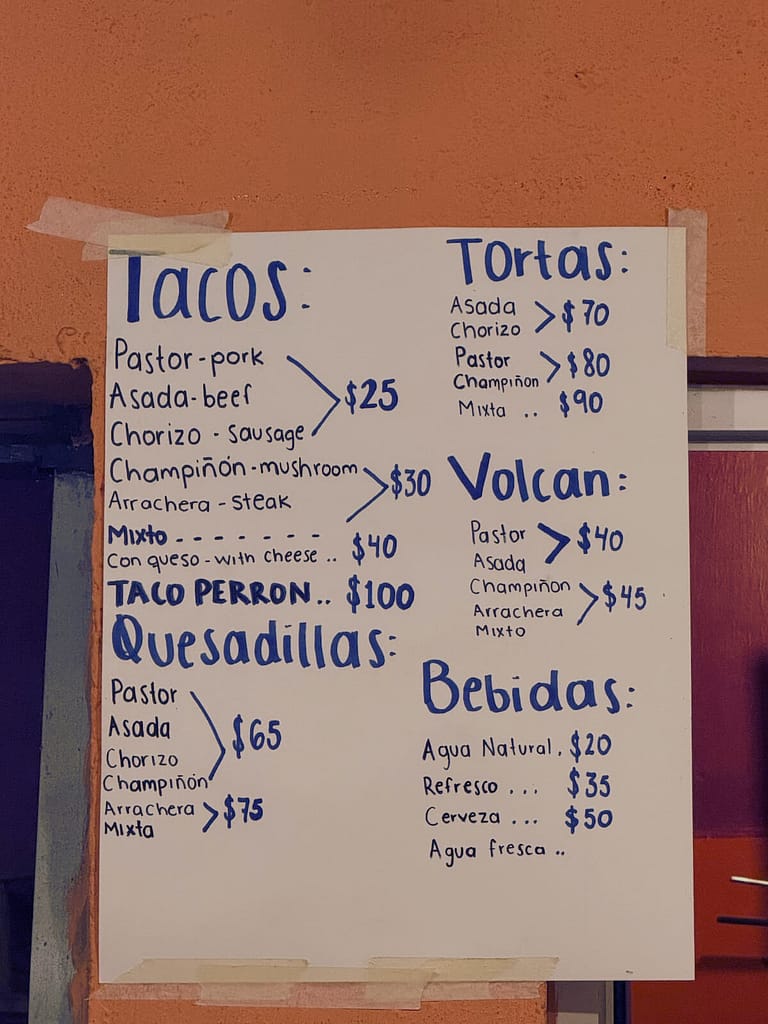 Tacos:
Pastor-pork
Asada-beef
Chorizo - sausage
$25
Champiñón-mushroom
Arrachera - steak
$30
Mixto - - - - - - -
Con queso - with cheese .. $40
TACO PERRON.. $100
Quesadillas:
Pastor
Asada
Chorizo
Champiñón
$65
Arrachera
Mixta
$75
Tortas:
Asada
Chorizo
$70
Pastor
Champiñon
$80
Mixta .. $90
Volcan:
Pastor
Asada
$40
Champiñon
Arrachera
Mixto
$45
Bebidas:
Agua Natural. $20
Refresco ... $35
Cerveza ... $50
Agua fresca ..